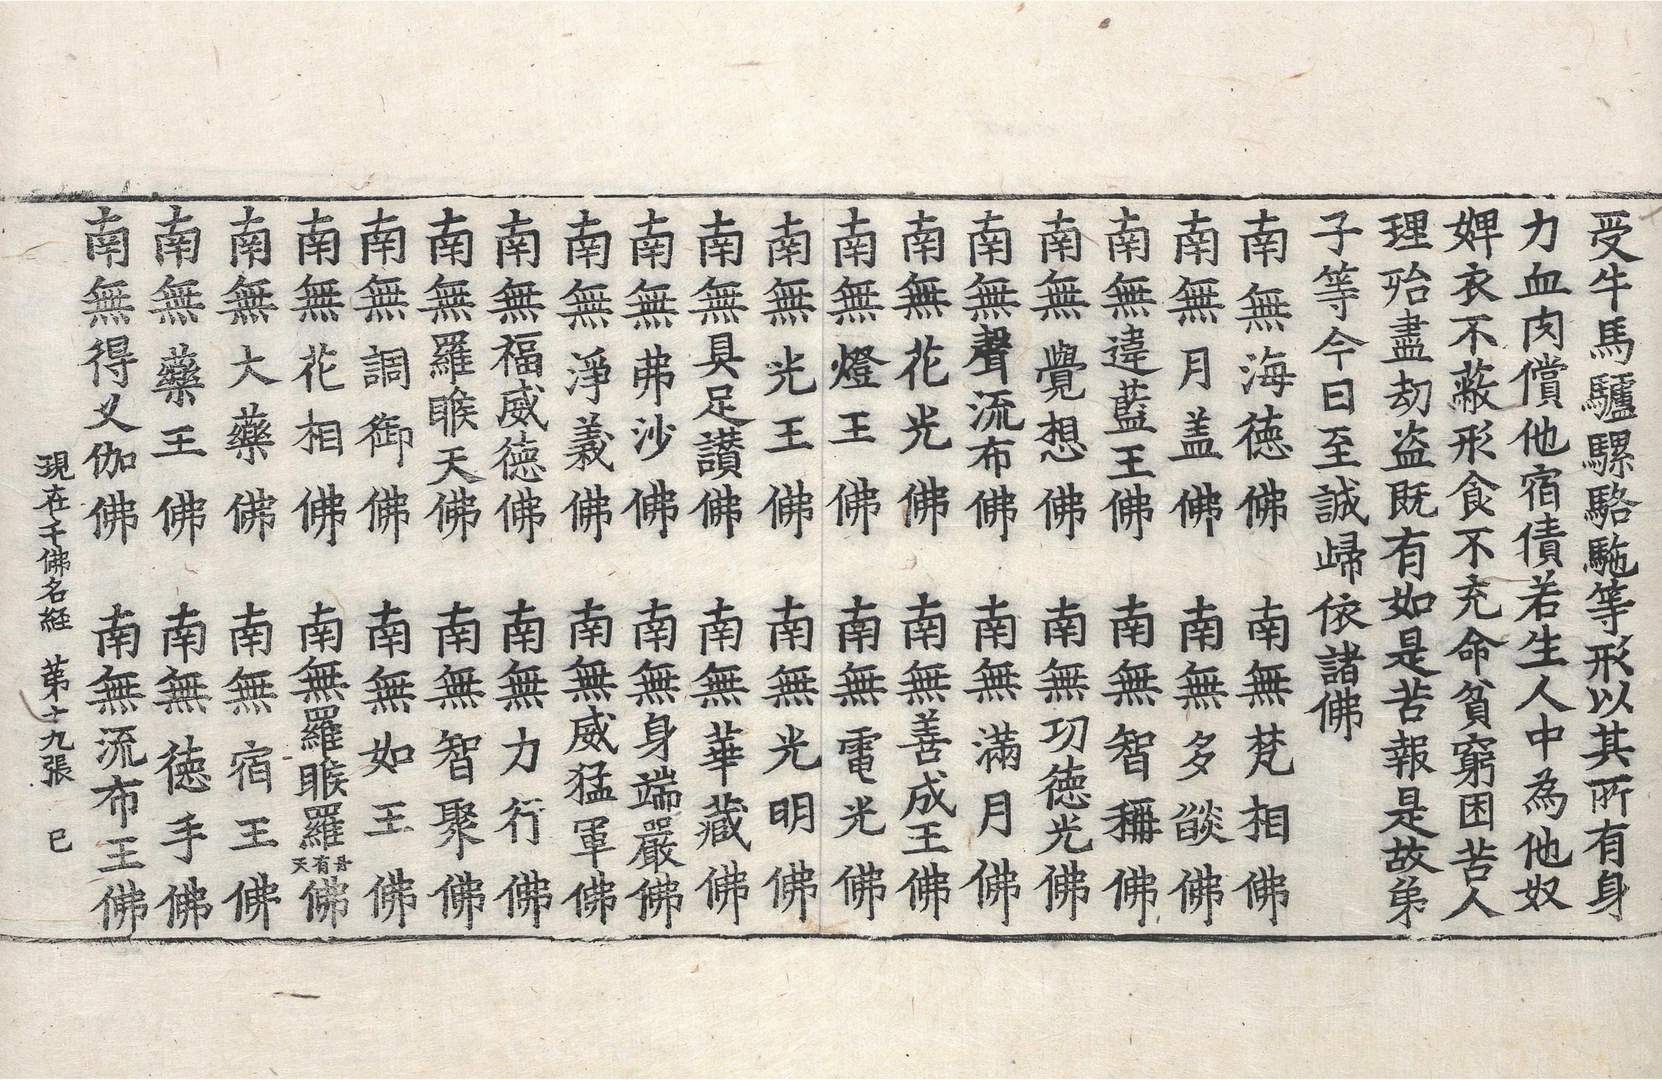 受牛馬驢騾駱駞等形以其所有身
力血肉償他宿債若生人中為他奴
婢衣不蔽形食不充命貧窮困苦人
理殆盡劫盗既有如是苦報是故弟
子等今日至誠歸依諸佛
南無海德佛　南無梵相佛
南無月盖佛　南無多燄佛
南無違藍王佛　南無智稱佛
南無覺想佛　南無功德光佛
南無聲流布佛　南無滿月佛
南無花光佛　南無善成王佛
南無燈王佛　南無電光佛
南無光王佛　南無光明佛
南無具足讃佛　南無華藏佛
南無弗沙佛　南無身端嚴佛
南無淨義佛　南無威猛軍佛
南無福威德佛　南無力行佛
南無羅睺天佛　南無智聚佛
南無調御佛　南無如王佛
南無花相佛　南無羅睺羅丹有天佛
南無大藥佛　南無宿王佛
南無藥王佛　南無德手佛
南無得叉伽佛　南無流布王佛
現在千佛名経　第十九張　巳